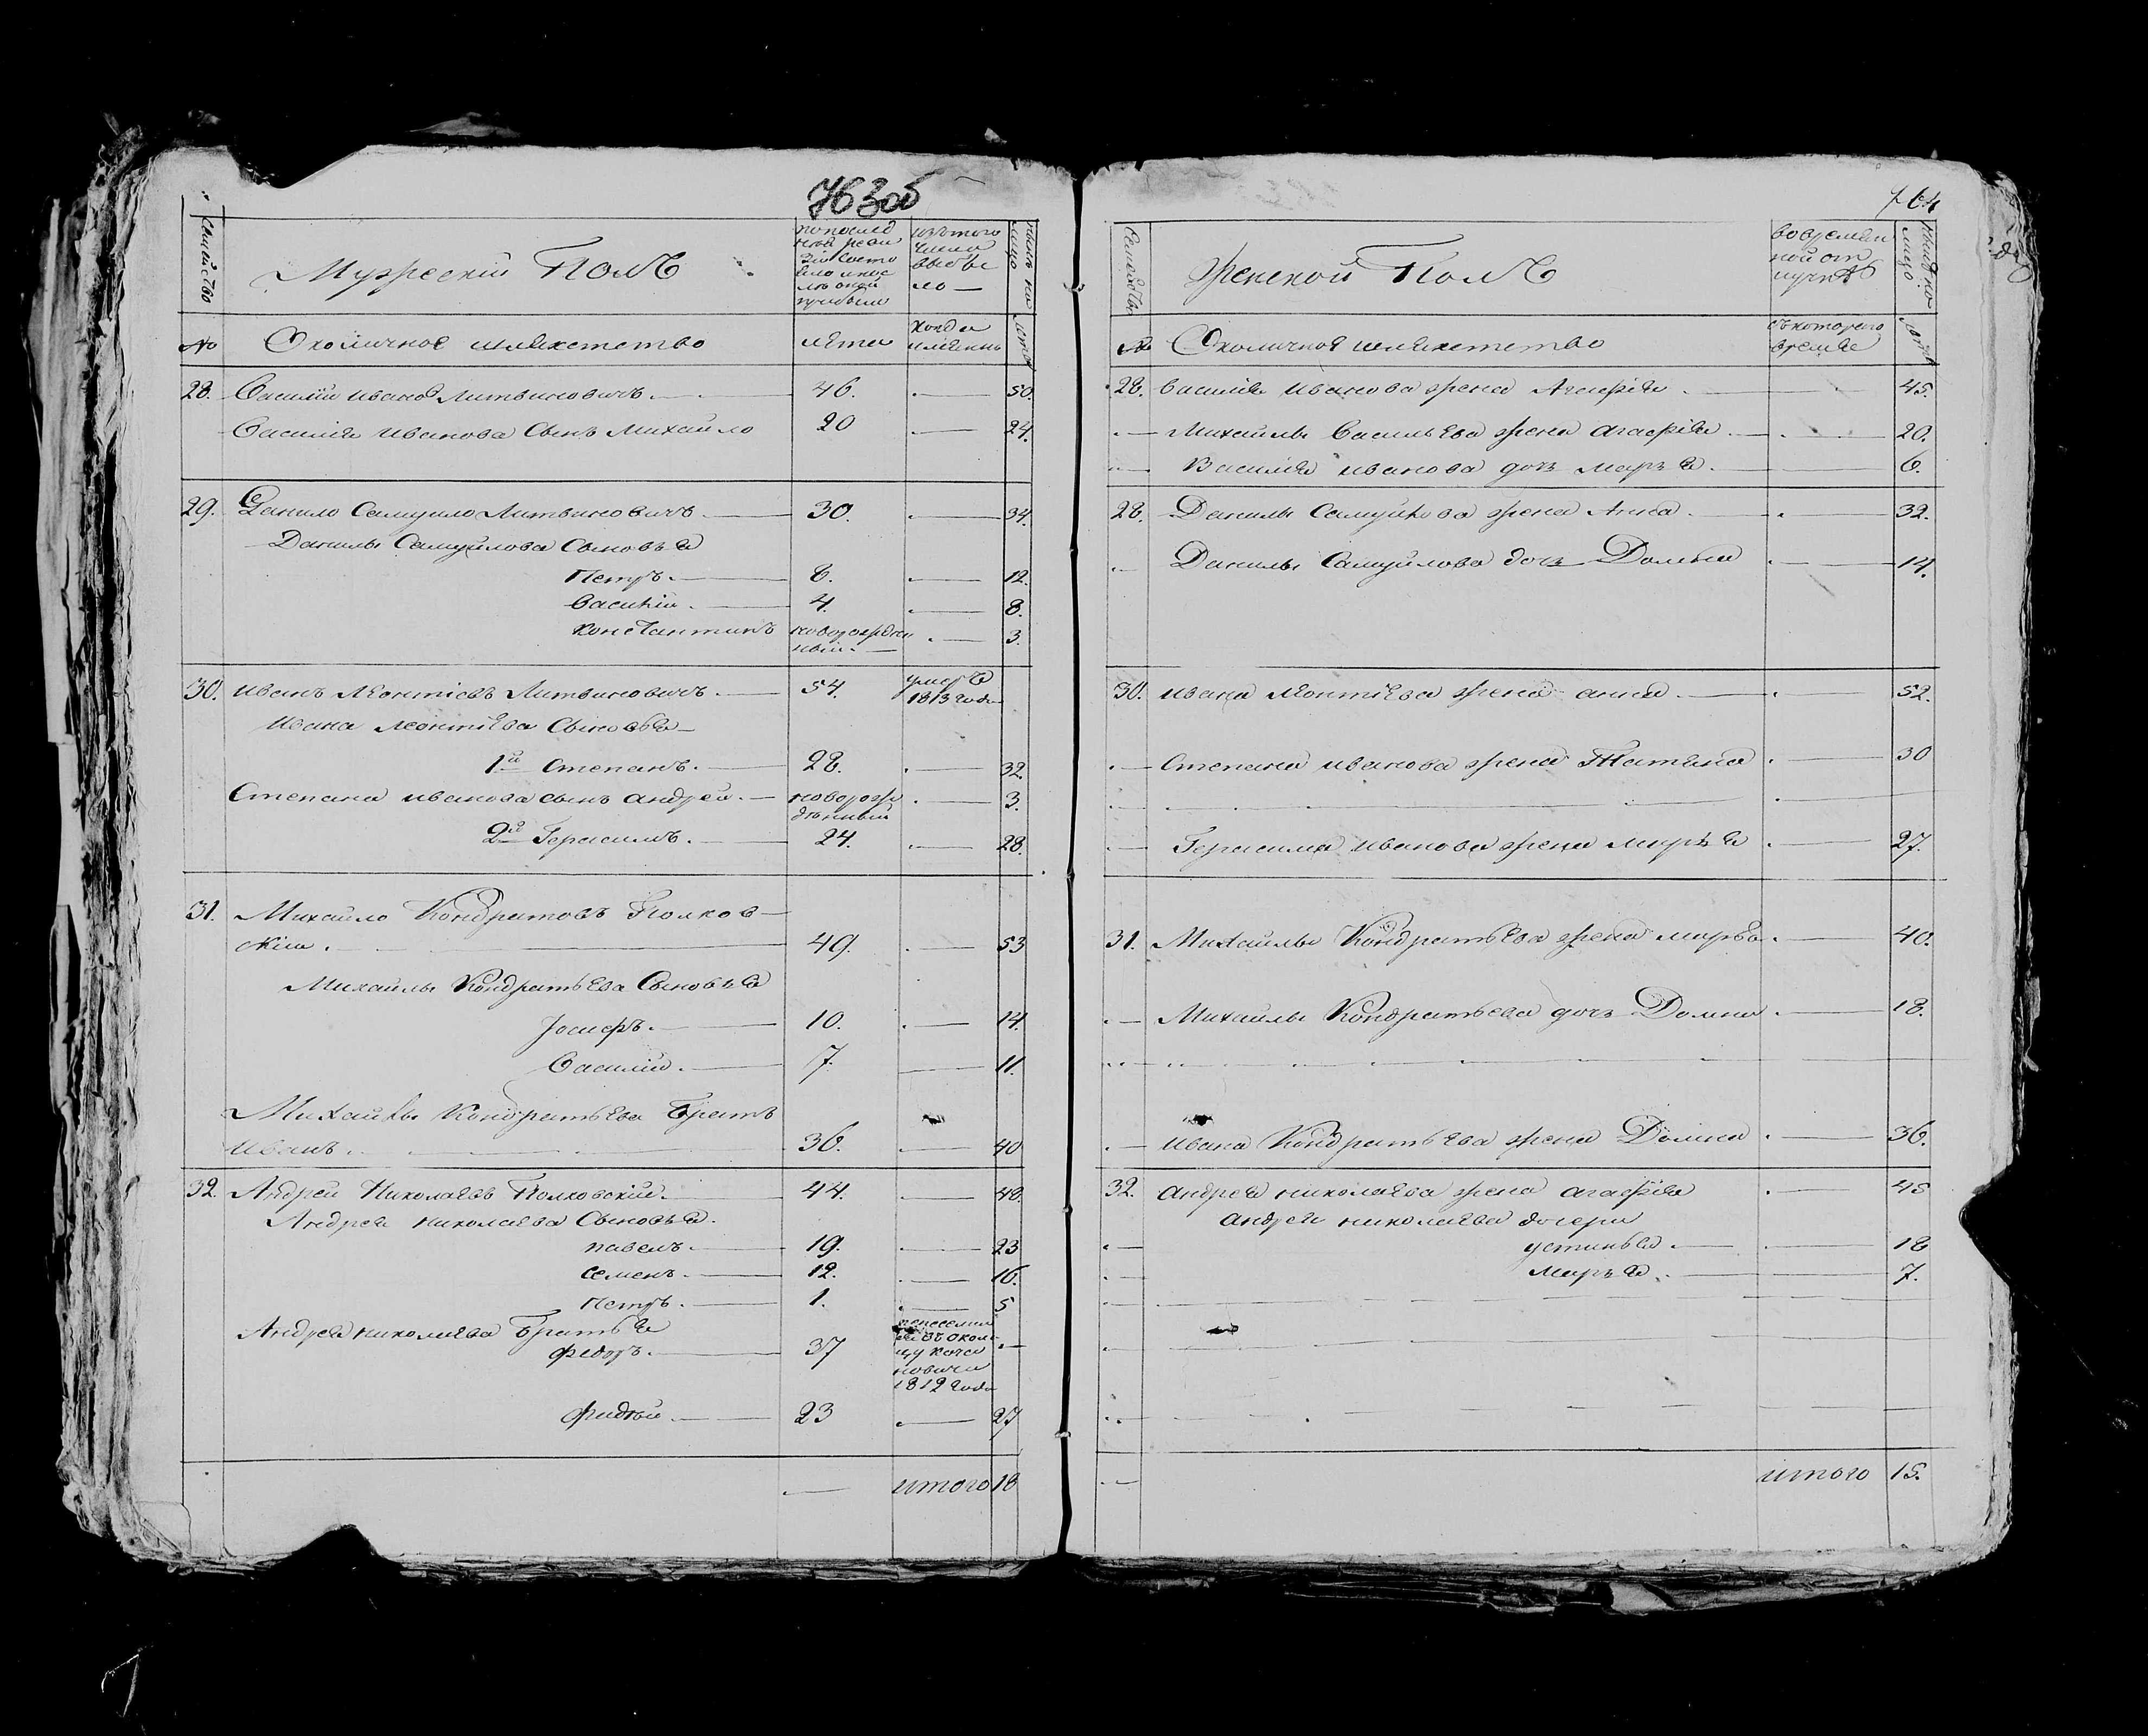 763 об
семейство
Мужескій Полъ
по послед
ней реви
зіи состо
яло и пос
лѣ оной
прибыло
изътого
числа
выбы
ло —
ныне на
лицо
№ Околичное шляхетство лета когда имянно лета
28. Василій Иванов Литвиновичъ. — 46. — 50.
Василія Иванова Сынъ Михайло 20 — 24.
29. Данило Самуило Литвиновичъ — 30. — 34.
Данилы Самуйлова Сыновья
Петръ. — 8. — 12.
Василій. — 4. — 8.
Константинъ новорожден
ный. — 3.
30. Иванъ Леонтіевъ Литвиновичъ. — 54. умре
1813 года
Ивана Леонтіева Сыновья —
1й Степанъ. — 28. — 32.
Степана Иванова сынъ Андрей. — новорож
денный — 3.
2й Герасимъ. — 24. — 28.
31. Михайло Кондратовъ Полков—
скій. — 49. — 53
Михайлы Кондратьева Сыновья
Іосифъ. — 10. — 14.
Василій. — 7. — 11.
Михайлы Кондратьева Братъ
Иванъ. — 36. — 40
32. Андрей Николаевъ Полковскій. — 44. — 48.
Андрея Николаева Сыновья.
Павелъ. — 19. — 23
Семенъ. — 12. — 16.
Петръ. — 1. — 5
Андрея Николаева Братья
Федоръ. — 37
въ околи
цу
1812 года —
Фадей. — 23 — 27
— итого 18
764
Семейство
Женской Полъ
во времян
ной от
лучкѣ
ныне на
лицо
№ Околичное шляхетство съ которого
время лета
28. Василія Иванова жена Агафія. — 45.
— Михайлы Васильева жена Агафія — 20.
— Василія Иванова дочь Марья. — 6.
28. Данилы Самуйлова жена Анна. — 32.
— Данилы Самуйлова дочь Домна — 14.
30. Ивана Леонтіева жена Анна. — 52.
— Степана Иванова жена Татьяна — 30
— Герасима Иванова жена Марья — 27.
31. Михайлы Кондратьева жена Марья. — 40.
— Михайлы Кондратьева дочь Домна — 18.
— Ивана Кондратьева жена Домна — 36.
32. Андрея Николаева жена Агафія — 45
Андрея Николаева дочери
— Устинья. — 18
— Марья. — 7.
— итого 15.